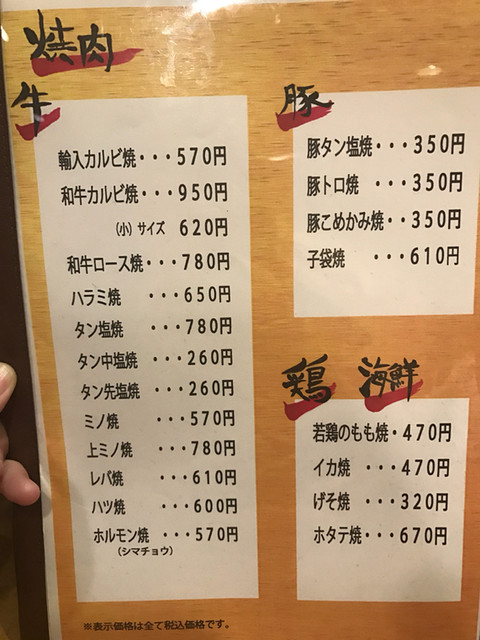 焼肉
牛
輸入カルビ焼・・・570円
和牛カルビ焼・・・950円
(小) サイズ 620円
和牛ロース焼・・・780円
ハラミ焼 ・・・650円
タン塩焼 ・・・780円
タン中塩焼 ・・・260円
タン先塩焼 ・・・260円
ミノ焼 ・・・570円
上ミノ焼 ・・・780円
レバ焼 ・・・610円
ハツ焼 ・・・600円
ホルモン焼 ・・・570円
(シマチョウ)
豚
豚タン塩焼・・・350円
豚トロ焼 ・・・350円
豚こめかみ焼・・350円
子袋焼 ・・・610円
鶏 海鮮
若鶏のもも焼・470円
イカ焼 ・・・470円
げそ焼 ・・・320円
ホタテ焼・・・670円
※表示価格は全て税込価格です。